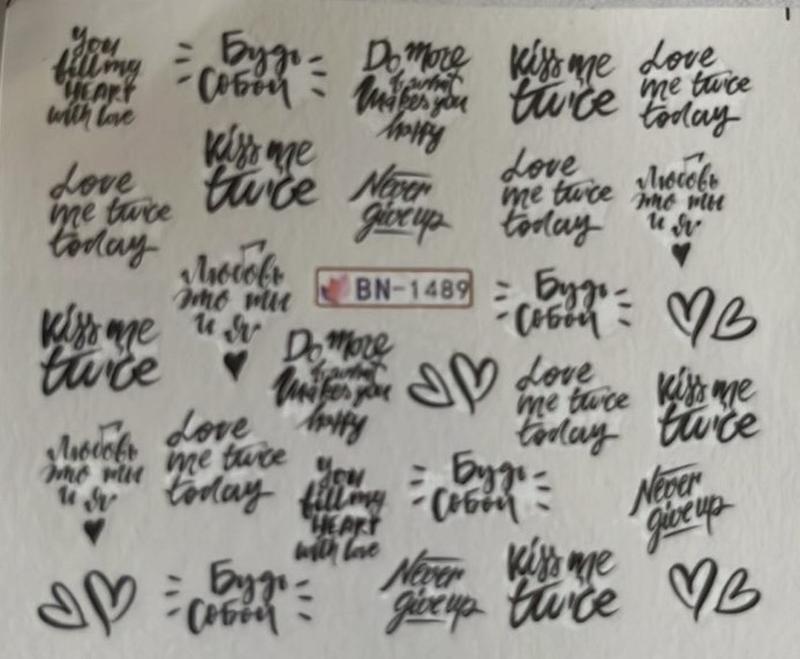 You
fill my
HEART
with love
Будь
Собой
Do more
of what
makes you
happy
Kiss me
twice
Love
me twice
today
Kiss me
twice
Love
me twice
today
Never
give up
Love
me twice
today
Любовь
это ты
и я
Любовь
это ты
и я
BN-1489
Будь
Собой
Kiss me
twice
Do more
of what
makes you
happy
Love
me twice
today
Kiss me
twice
Любовь
это ты
и я
Love
me twice
today
You
fill my
HEART
with love
Будь
Собой
Never
give up
Будь
Собой
Never
give up
Kiss me
twice